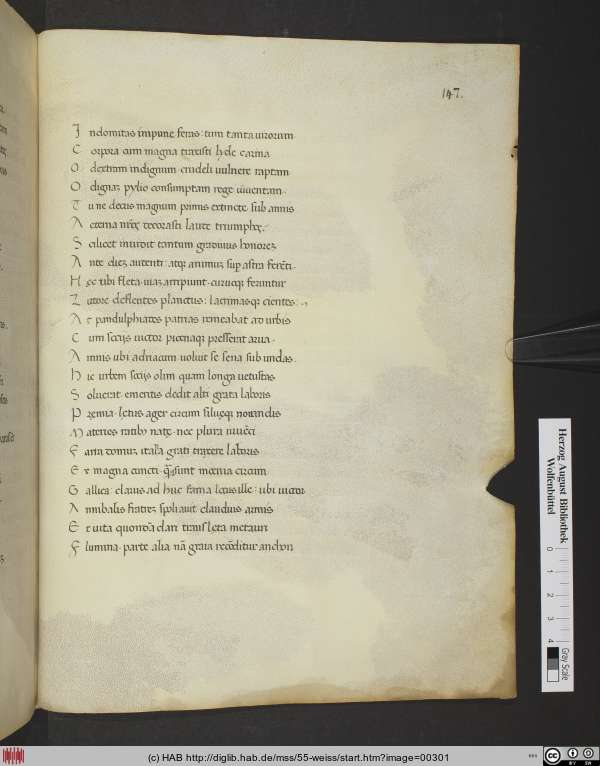 147.
Indomitas impune feras: tum tanta virorum
Corpora cum magna traxisti hęc de carina
O dextram indignum crudeli vulnere raptam
O dignaꝫ pylio consumptam rege viventam.
Tu ne decus magnum primis extincte sub annis
Aeterna decorasti laute triumphę.
Scilicet invidit tantum gradivus honoreꝫ
Ante dieꝫ autenti: atqꝫ animuꝫ suꝑ astra
Hęc ubi fleta arripiunt feruntur
deflentes planctus: lacrimasqꝫ cientes:
At pandulphiades patrias remeabat ad urbis
Cum sociis victor picenaqꝫ presserat arva.
Amnis ubi adriacum voluit se sena sub undas.
Hic urbem sociis olim quam longa vetustas
Soluerat ementis dedit alti grata laboris
Premia. lętus ager circum siluęqꝫ
Materies ratibꝫ natę. nec plura
domuꝫ itala grati traxere laboris
Et magna cuncti sunt męnia circum
Gallica. clarus ad huc fama locus ille: ubi victor
Annibalis fratreꝫ spoliavit claudius armis
Et vita quondā clari transl&eta metauri
Flumina. parte alia nā graia recōditur anchon
Herzog August Bibliothek
Wolfenbüttel
0 1 2 3 4
Gray Scale
(c) HAB http://diglib.hab.de/mss/55-weiss/start.htm?image=00301
cc BY SA